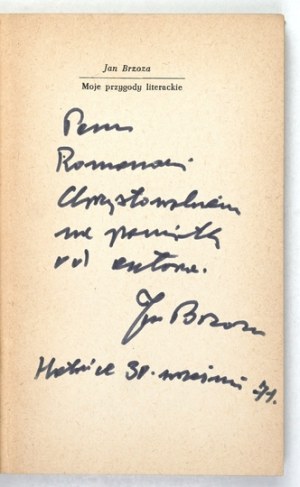 Jan Brzoza
Moje przygody literackie
Panu
Romanowi
na pamiątkę
od autora.
Jan Brzoza
30. 71.